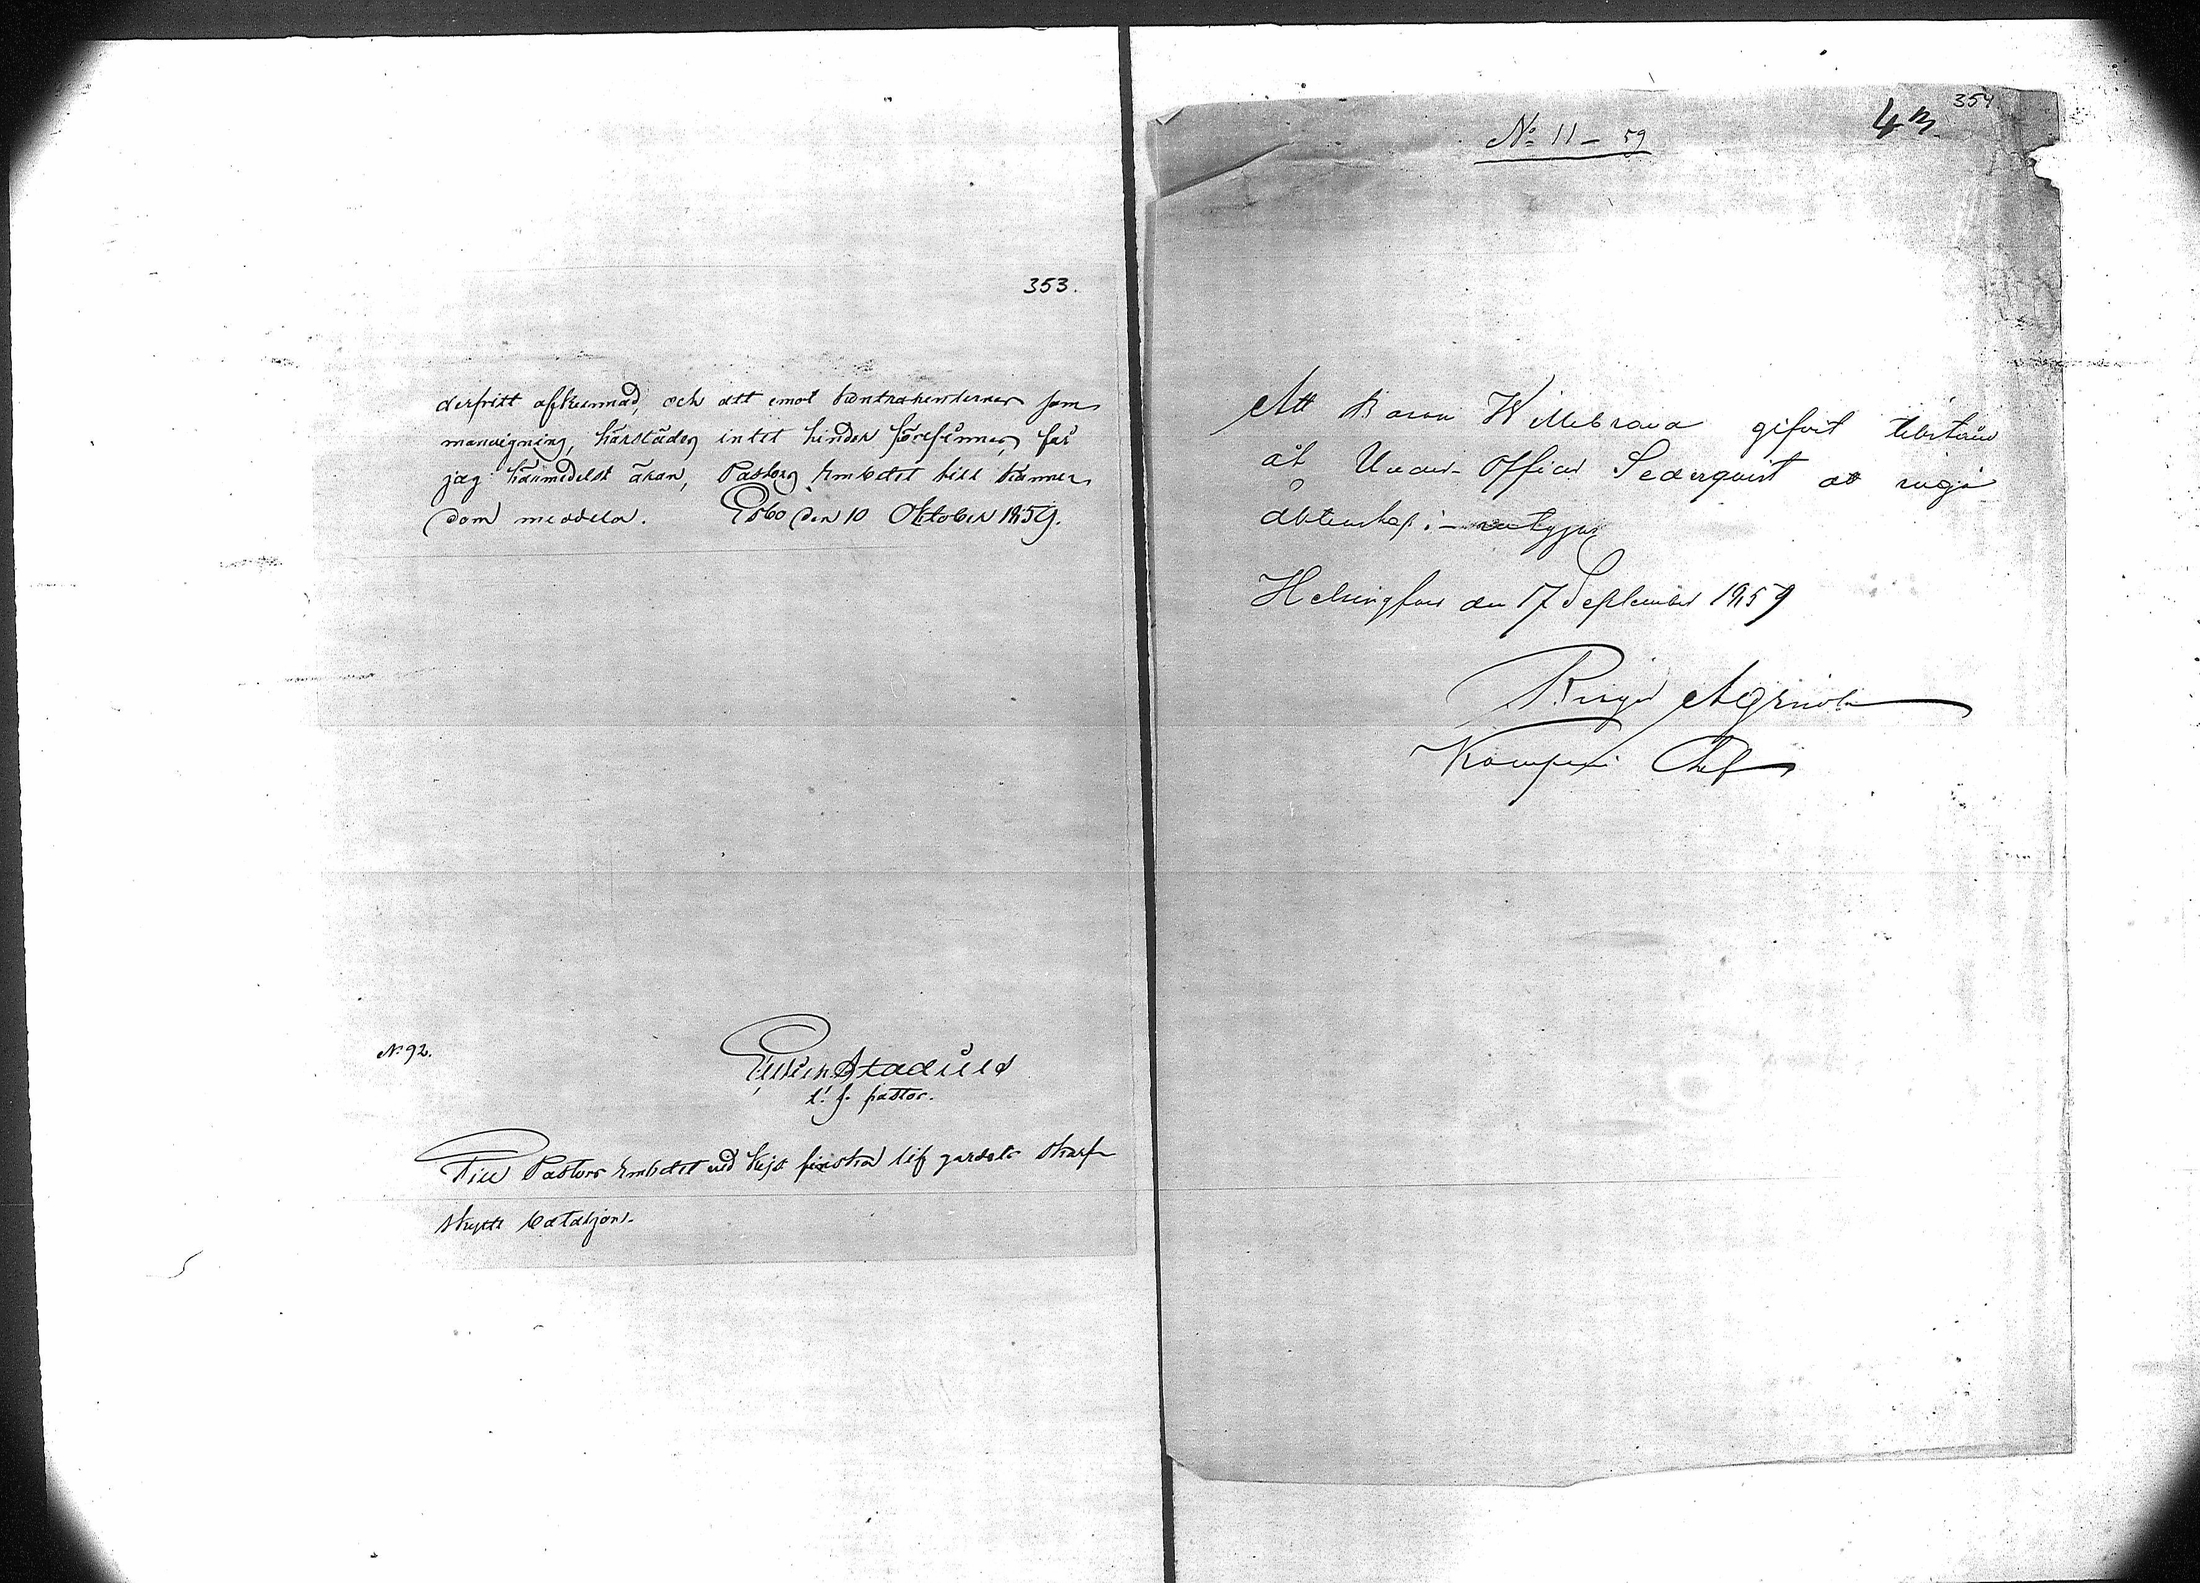 353.
derfritt afkunnad, och att emot kontrahenternes sam
manvigning, härstädes intet hinder förefinnes, får
jag härmedelst äran, Pastors Embetet till kännes
dom meddela. Esbo den 10 Oktober 1859.
No 92.
Stadius
t. f. pastor.
Till Pastors Embetet vid Kejs finska lif gardets skarp
skytte bataljon.
354
43
No 11 - 59
Att Baron Willebrand gifvit tilstånd
åt Under-Officer Sederqvist at ingå
äktenskap; - intygar
Helsingfors den 17 September 1859
Kompani Chef